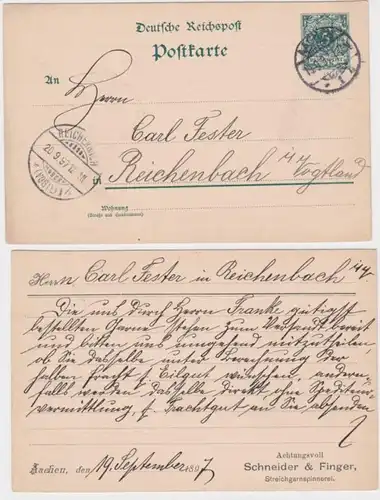 Deutsche Reichspost
Postkarte
An
Herrn
Carl Fester
Reichenbach i/V
Vogtland
in
REICHENBACH
20.9.97
(VOGTL.)
Wohnung
(Straße und Hausnummer)
Herrn Carl Fester in Reichenbach i/V.
Die uns durch Herrn Franke gütigst
bestellten Garne stehen zum Versandt bereit
und bitten uns umgehend mitzutheilen
ob Sie dasselbe unter Berechnung der
halben Fracht p. Eilgut wünschen, andern-
falls werden dasselbe direkt ohne Spediteur-
vermittlung p. Frachtgut an Sie absenden
Aachen, den 19. September 1897
Achtungsvoll
Schneider & Finger,
Streichgarnspinnerei.